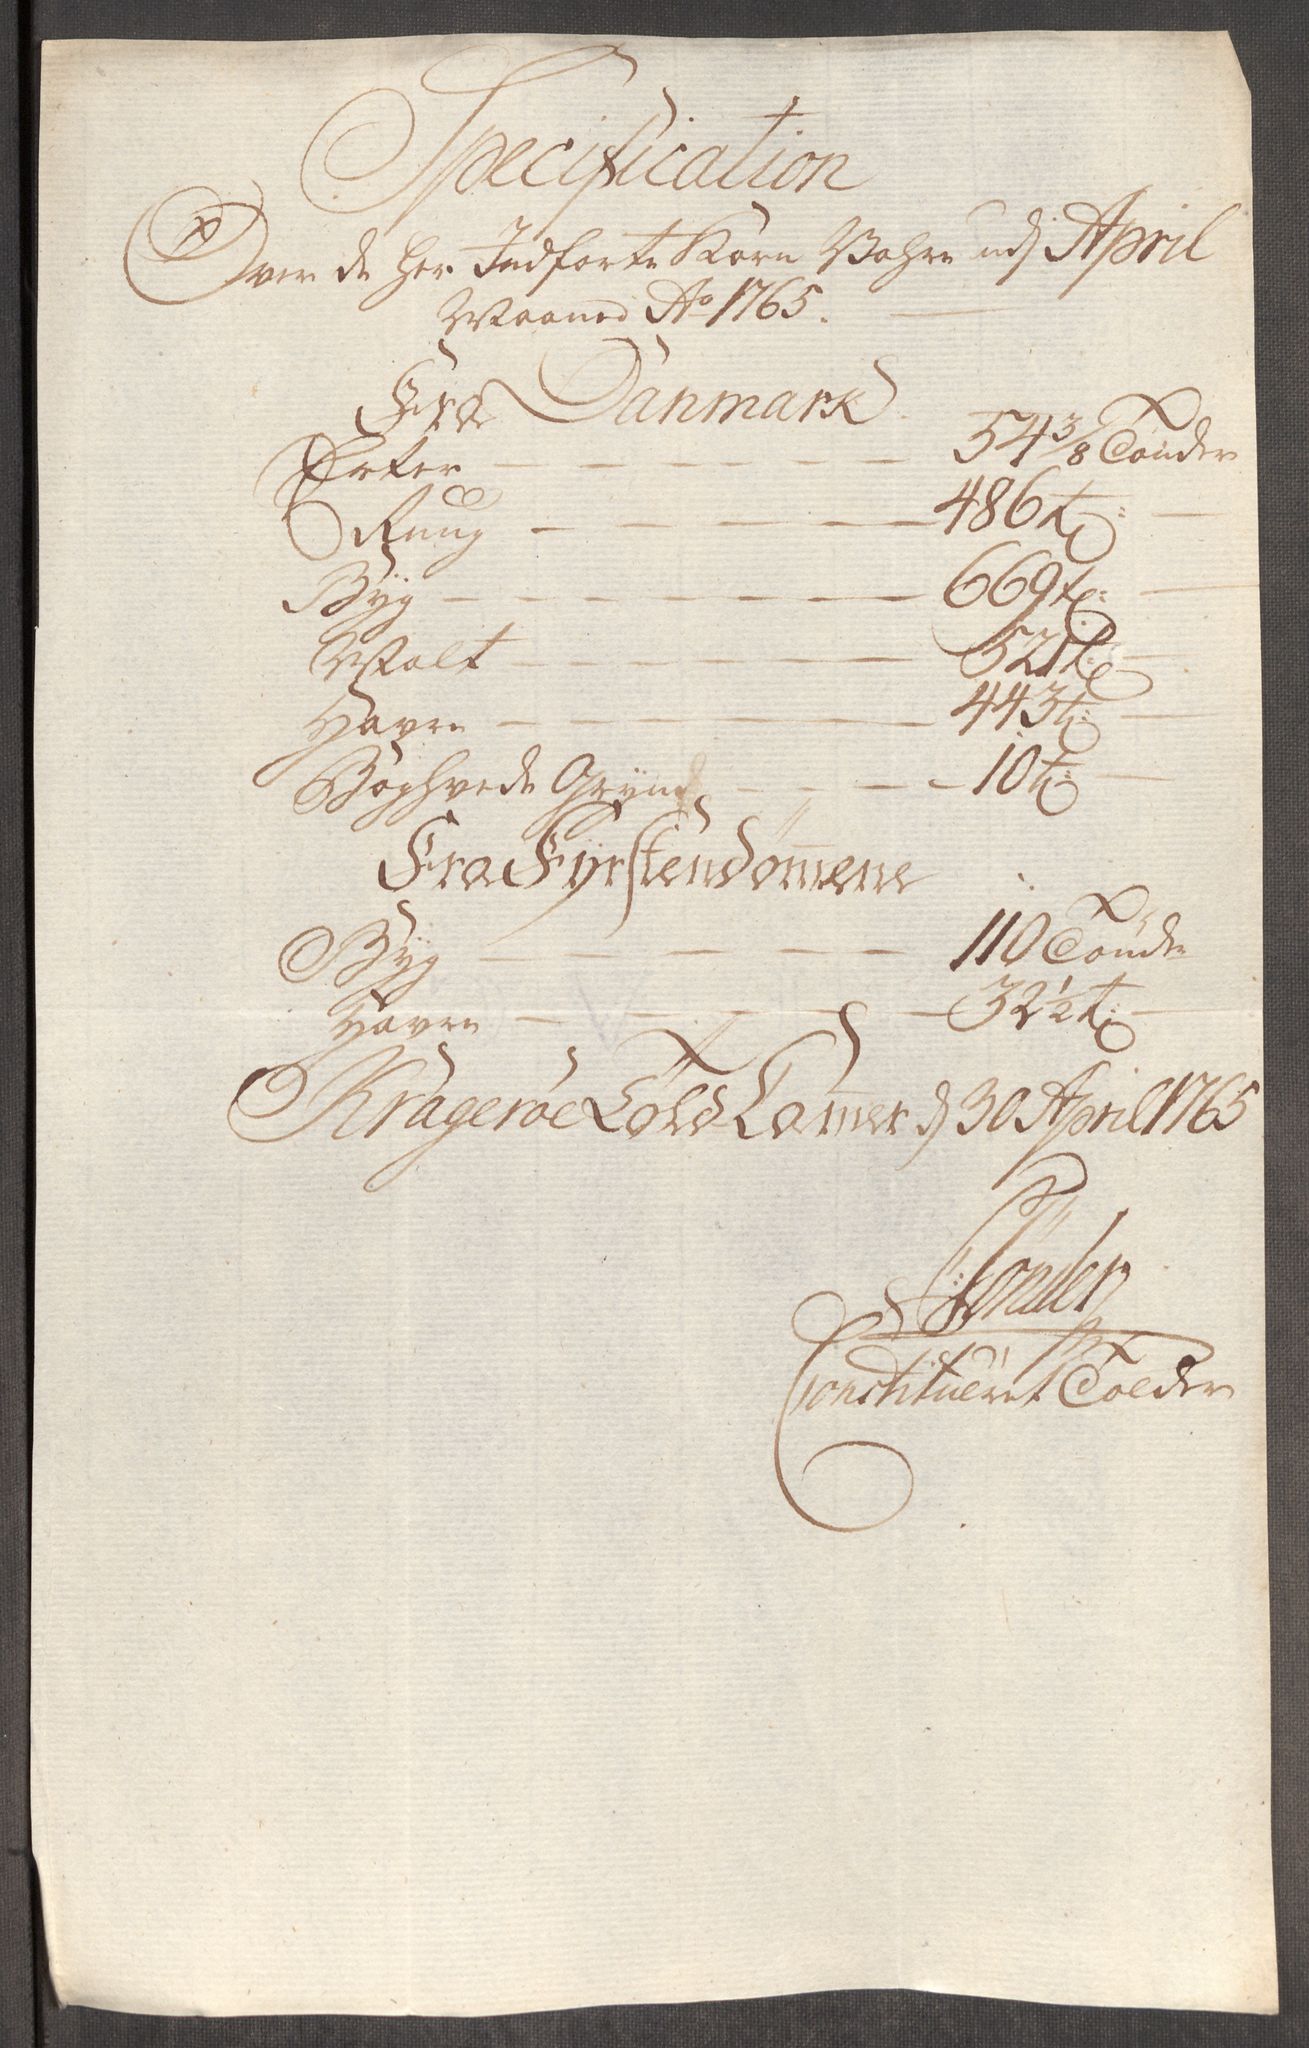 Specification
Over de her Indførte Korn Vahre udj April
Maaned Ao 1765.
Fra Danmark
Erter 54 3/8 Tønder
Ruug 486 t:
Byg 669 t:
Malt 521 t:
Havre 443 t:
Boghvede Gryn 10 t:
Fra Fyrstendømene
Byg 110 Tønder
Havre 32 1/2 t:
Kragerøe Told Camer dj 30 April 1765
Tønder
Constitueret Tolder